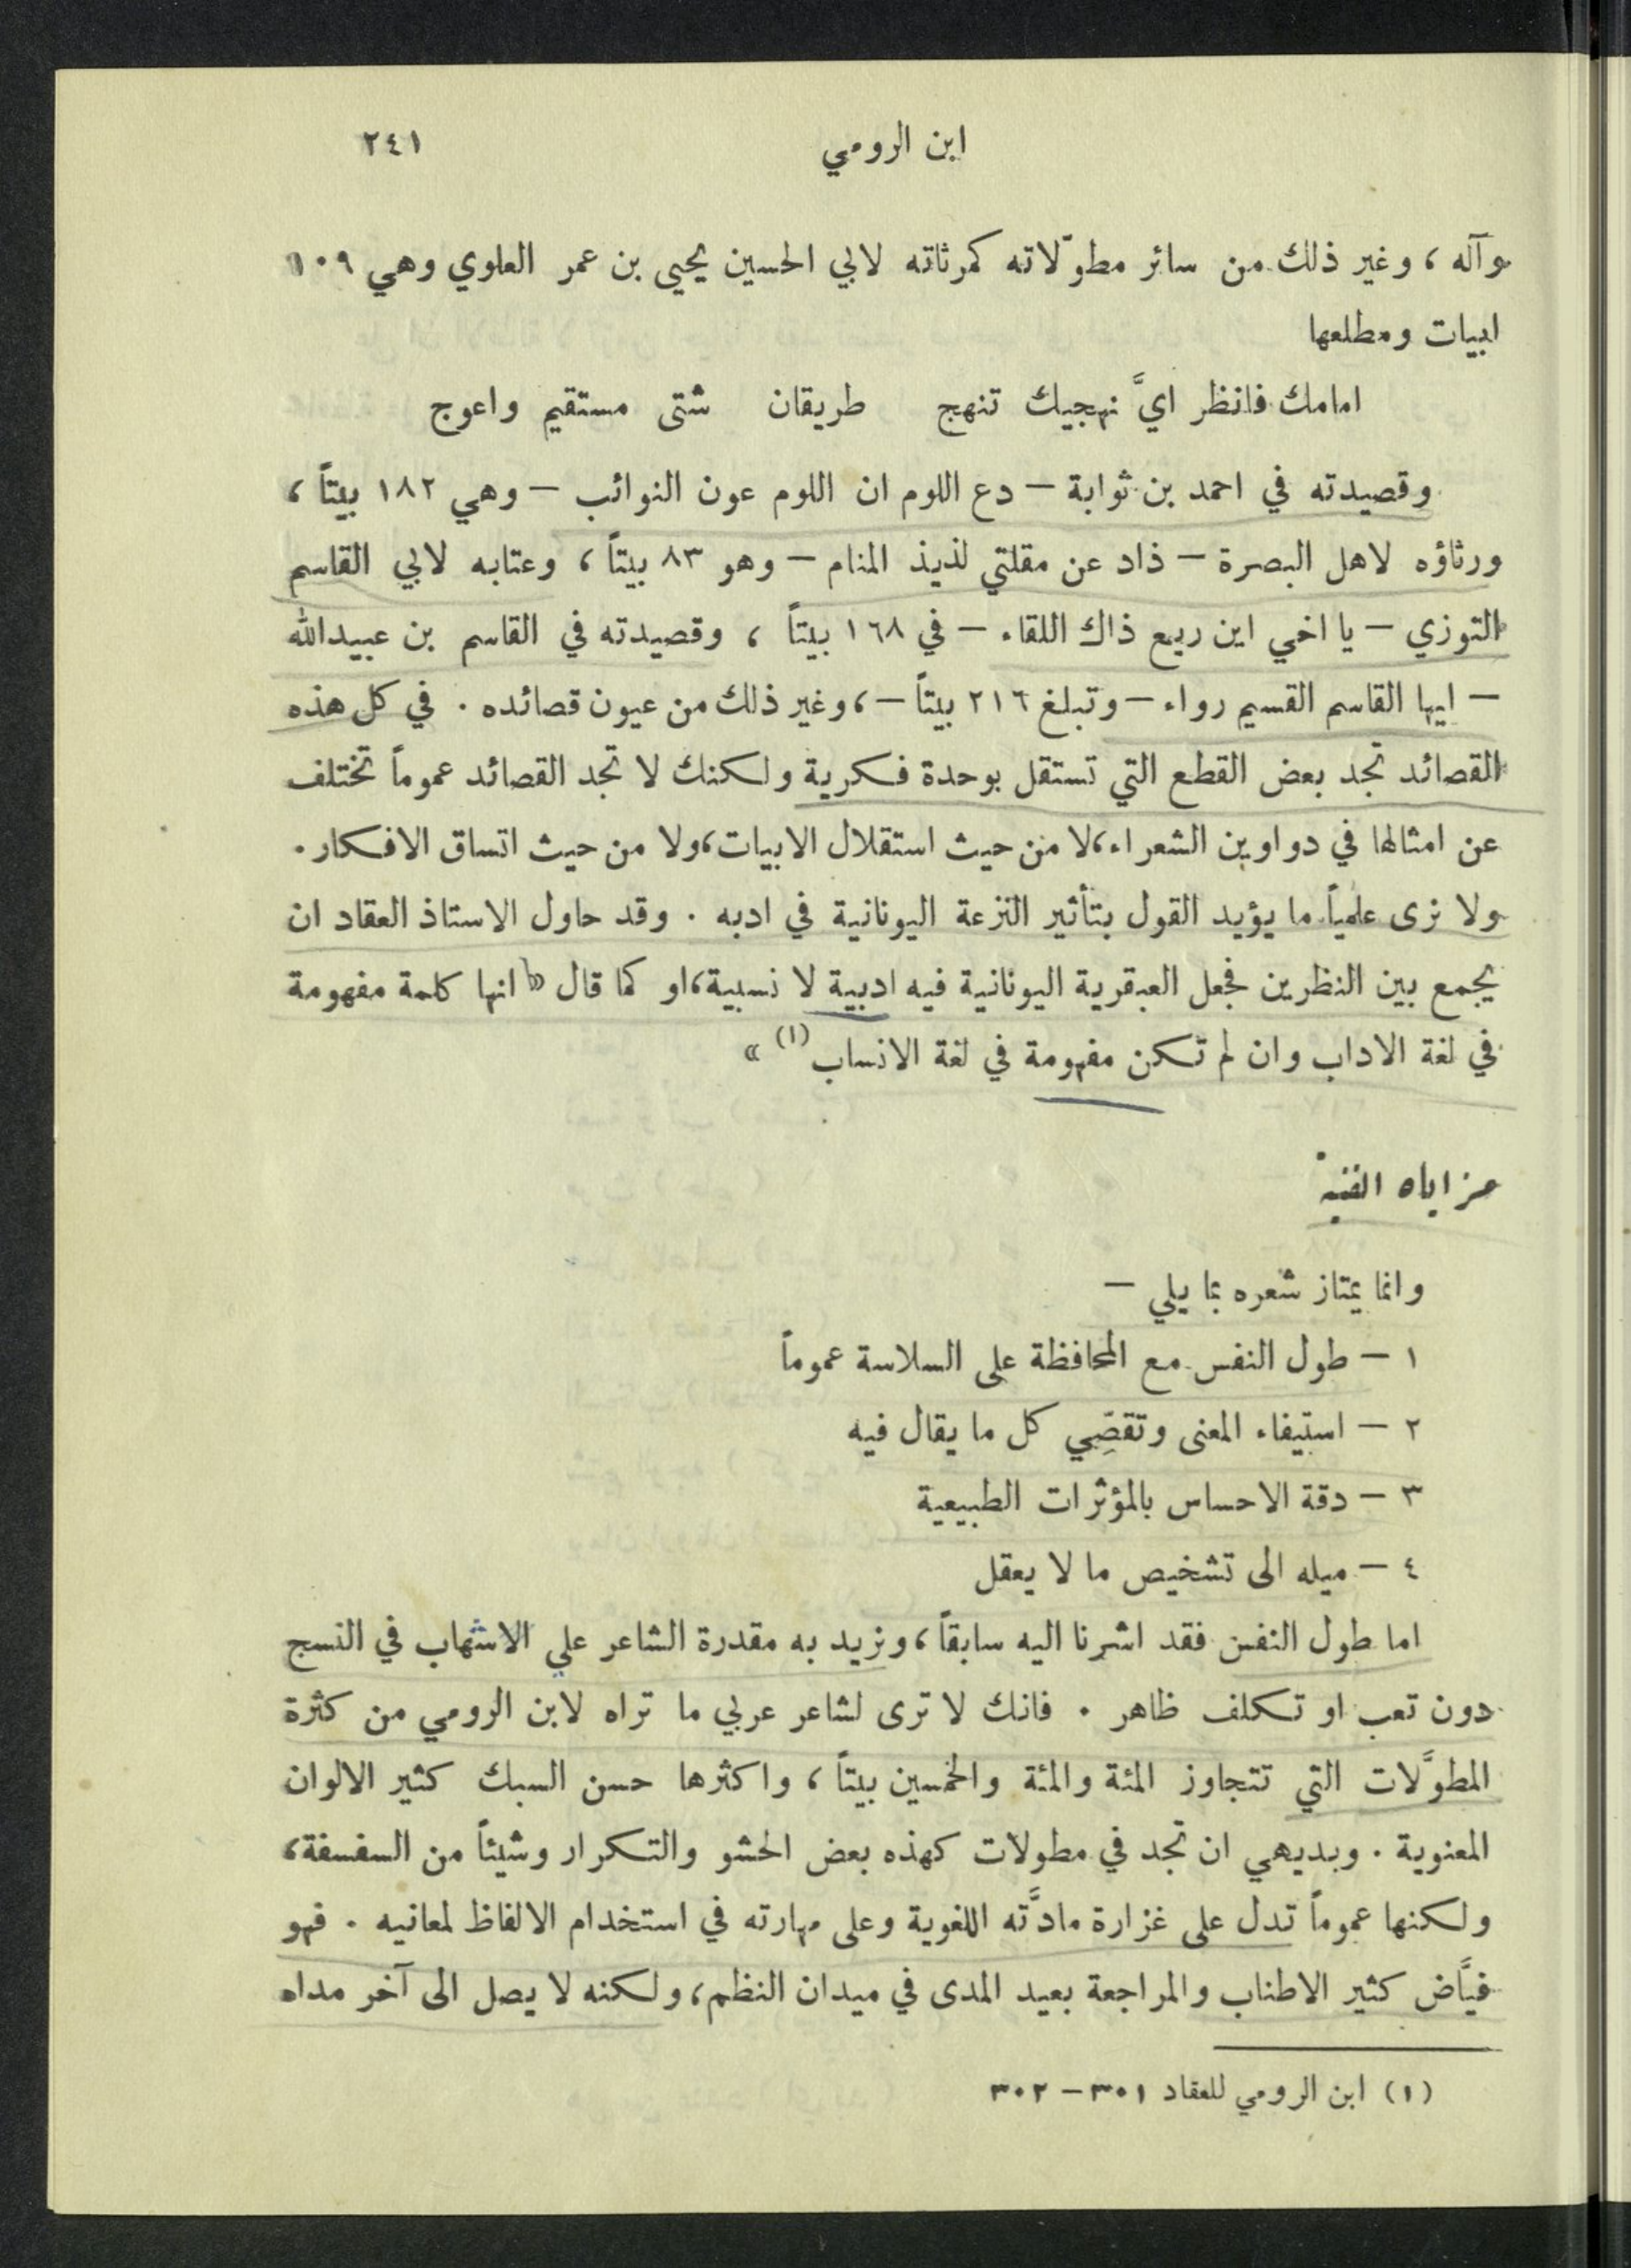 ابن الرومي ٢٤١
وآله ، وغير ذلك من سائر مطوّلاته كمرثاته لابي الحسين يحيى بن عمر العلوي وهي ١٠٩
ابيات ومطلعها
امامك فانظر ايَّ نهجيك تنهج طريقان شتى مستقيم واعوج
وقصيدته في احمد بن ثوابة – دع اللوم ان اللوم عون النوائب – وهي ١٨٢ بيتاً ،
ورثاؤه لاهل البصرة – ذاد عن مقلتي لذيذ المنام – وهو ٨٣ بيتاً ، وعتابه لابي القاسم
التوزي – يا اخي اين ريع ذاك اللقاء – في ١٦٨ بيتاً ، وقصيدته في القاسم بن عبيدالله
– ايها القاسم القسيم رواء – وتبلغ ٢١٦ بيتاً – ، وغير ذلك من عيون قصائده . في كل هذه
القصائد تجد بعض القطع التي تستقل بوحدة فكرية ولكنك لا تجد القصائد عموماً تختلف
عن امثالها في دواوين الشعراء ، لا من حيث استقلال الابيات ، ولا من حيث اتساق الافكار .
ولا نرى علمياً ما يؤيد القول بتأثير النزعة اليونانية في ادبه . وقد حاول الاستاذ العقاد ان
يجمع بين النظرين فجعل العبقرية اليونانية فيه ادبية لا نسبية ، او كما قال « انها كلمة مفهومة
في لغة الاداب وان لم تكن مفهومة في لغة الانساب (١) »
مزاياه الفنية
وانما يمتاز شعره بما يلي –
١ – طول النفس مع المحافظة على السلاسة عموماً
٢ – استيفاء المعنى وتقصِّي كل ما يقال فيه
٣ – دقة الاحساس بالمؤثرات الطبيعية
٤ – ميله الى تشخيص ما لا يعقل
اما طول النفس فقد اشرنا اليه سابقاً ، ونريد به مقدرة الشاعر على الاسهاب في النسج
دون تعب او تكلف ظاهر . فانك لا ترى لشاعر عربي ما تراه لابن الرومي من كثرة
المطوَّلات التي تتجاوز المئة والمئة والخمسين بيتاً ، واكثرها حسن السبك كثير الالوان
المعنوية . وبديهي ان تجد في مطولات كهذه بعض الحشو والتكرار وشيئاً من السفسفة ،
ولكنها عموماً تدل على غزارة مادَّته اللغوية وعلى مهارته في استخدام الالفاظ لمعانيه . فهو
فيَّاض كثير الاطناب والمراجعة بعيد المدى في ميدان النظم ، ولكنه لا يصل الى آخر مداه
(١) ابن الرومي للعقاد ٣٠١ – ٣٠٢